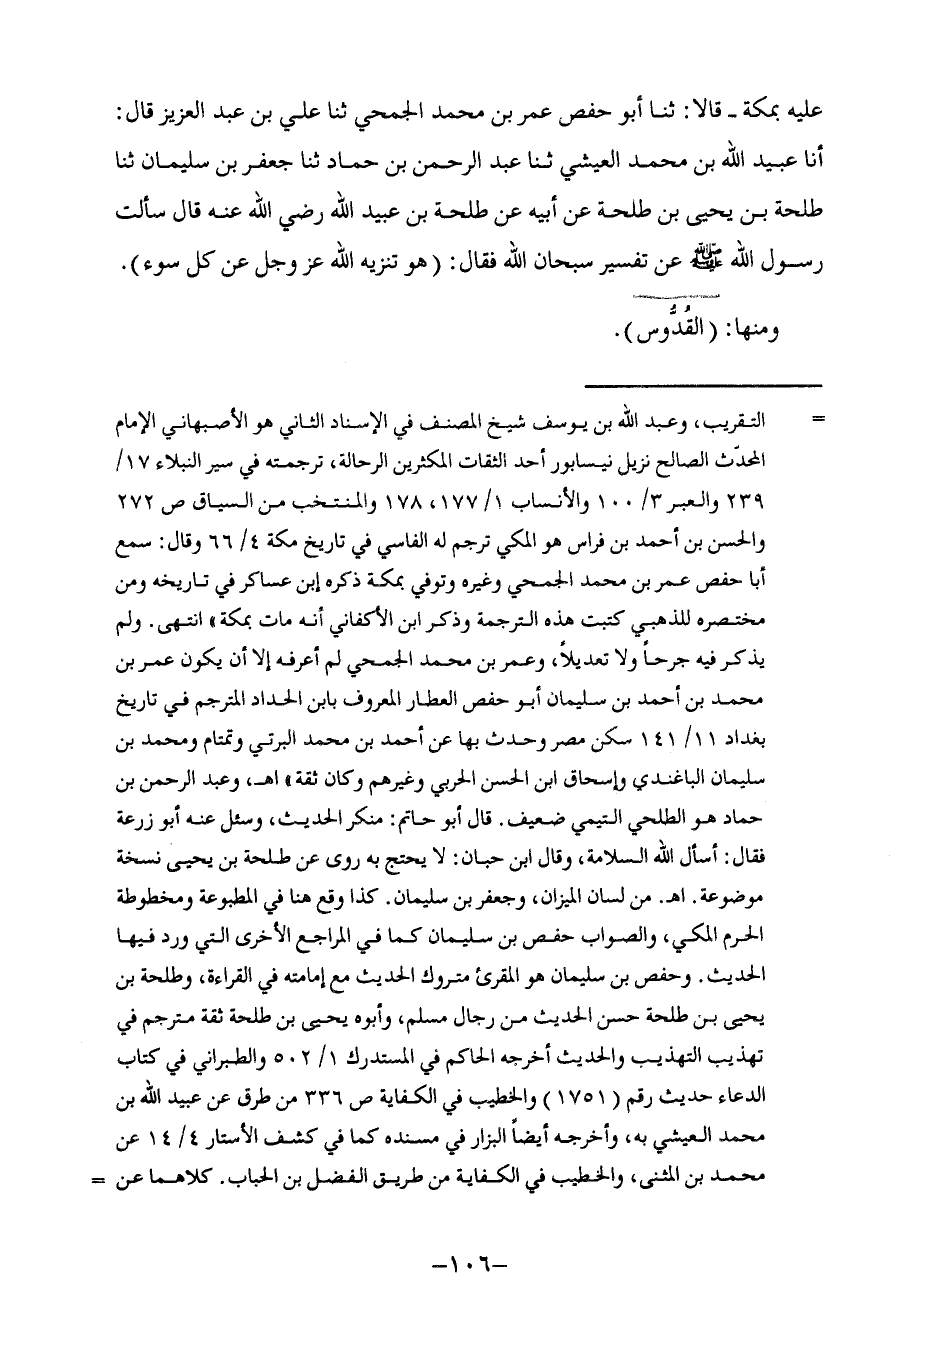 عليه بمكة ـ قالا: ثنا أبو حفص عمر بن محمد الجمحي ثنا علي بن عبد العزيز قال:
أنا عبيد الله بن محمد العيشي ثنا عبد الرحمن بن حماد ثنا جعفر بن سليمان ثنا
طلحة بن يحيى بن طلحة عن أبيه عن طلحة بن عبيد الله رضي الله عنه قال سألت
رسول الله ﷺ عن تفسير سبحان الله فقال: (هو تنزيه الله عز وجل عن كل سوء).
ومنها: (القُدُّوس).
= التقريب، وعبد الله بن يوسف شيخ المصنف في الإسناد الثاني هو الأصبهاني الإمام
المحدّث الصالح نزيل نيسابور أحد الثقات المكثرين الرحالة، ترجمته في سير النبلاء ١٧/
٢٣٩ والعبر ٣/ ١٠٠ والأنساب ١/ ١٧٧، ١٧٨ والمنتخب من السياق ص ٢٧٢
والحسن بن أحمد بن فراس هو المكي ترجم له الفاسي في تاريخ مكة ٤/ ٦٦ وقال: سمع
أبا حفص عمر بن محمد الجمحي وغيره وتوفي بمكة ذكره إبن عساكر في تاريخه ومن
مختصره للذهبي كتبت هذه الترجمة وذكر ابن الأكفاني أنه مات بمكة» انتهى. ولم
يذكر فيه جرحاً ولا تعديلاً، وعمر بن محمد الجمحي لم أعرفه إلا أن يكون عمر بن
محمد بن أحمد بن سليمان أبو حفص العطار المعروف بابن الحداد المترجم في تاريخ
بغداد ١١/ ١٤١ سكن مصر وحدث بها عن أحمد بن محمد البرتي وتمتام ومحمد بن
سليمان الباغندي وإسحاق ابن الحسن الحربي وغيرهم وكان ثقة» اهـ، وعبد الرحمن بن
حماد هو الطلحي التيمي ضعيف. قال أبو حاتم: منكر الحديث، وسئل عنه أبو زرعة
فقال: أسأل الله السلامة، وقال ابن حبان: لا يحتج به روى عن طلحة بن يحيى نسخة
موضوعة. اهـ. من لسان الميزان، وجعفر بن سليمان. كذا وقع هنا في المطبوعة ومخطوطة
الحرم المكي، والصواب حفص بن سليمان كما في المراجع الأخرى التي ورد فيها
الحديث. وحفص بن سليمان هو المقرئ متروك الحديث مع إمامته في القراءة، وطلحة بن
يحيى بن طلحة حسن الحديث من رجال مسلم، وأبوه يحيى بن طلحة ثقة مترجم في
تهذيب التهذيب والحديث أخرجه الحاكم في المستدرك ١/ ٥٠٢ والطبراني في كتاب
الدعاء حديث رقم (١٧٥١) والخطيب في الكفاية ص ٣٣٦ من طرق عن عبيد الله بن
محمد العيشي به، وأخرجه أيضاً البزار في مسنده كما في كشف الأستار ٤/ ١٤ عن
محمد بن المثنى، والخطيب في الكفاية من طريق الفضل بن الحباب. كلاهما عن =
–١٠٦–